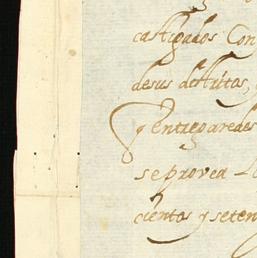 castigados Con
desus delitos,
y entregaredes
seprovea
cientos y seten